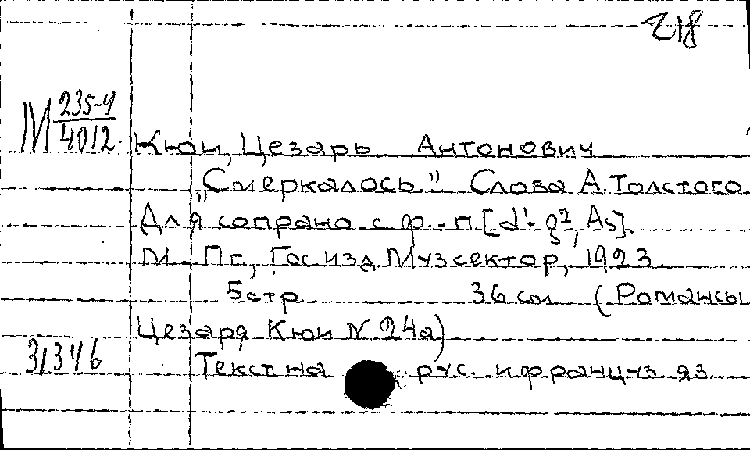 218
М 235-4
4012
Кюи, Цезарь Антонович
"Смеркалось" Слова А. Толстого
Для сопрано с ф-п
М-Пг, Госизд Музсектор, 1923
5 стр 36 см (Романсы
Цезаря Кюи № 24а)
31346
Текст на рус. и француз яз